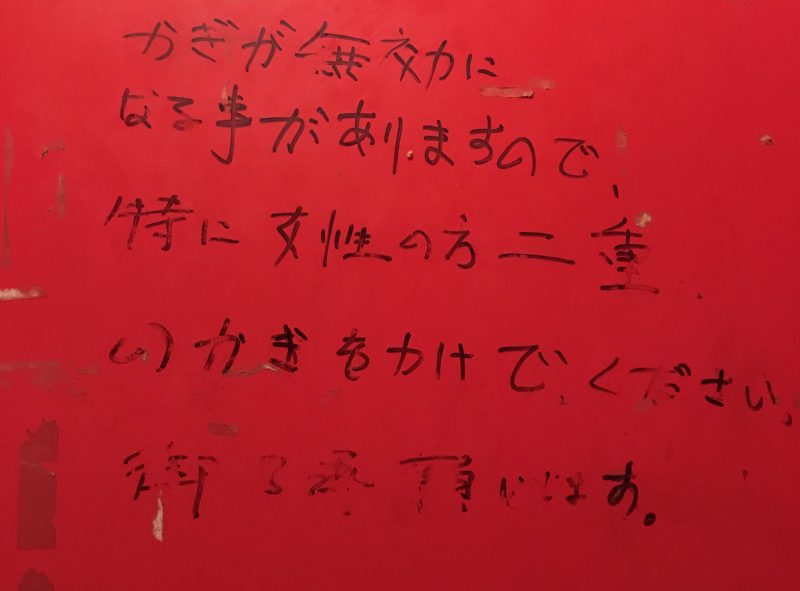 かぎが無効に
なる事がありますので、
特に女性の方二重
のかぎをかけて、ください。
御了承頂います。